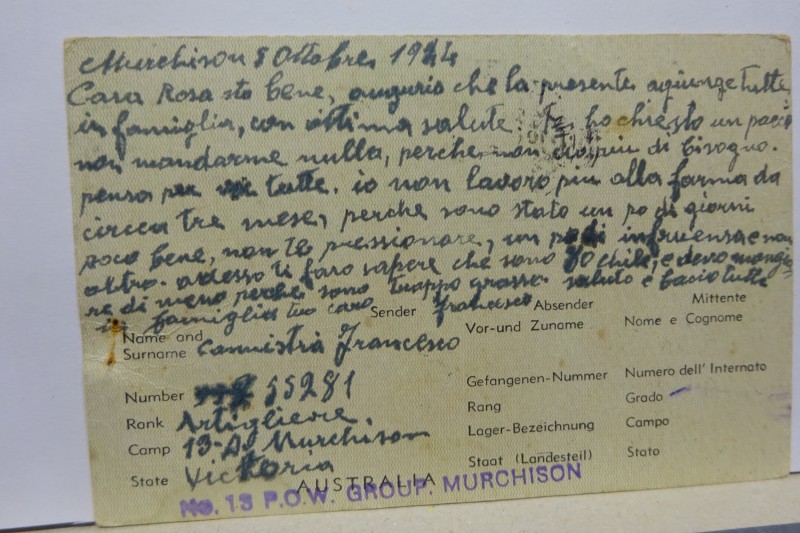 Murchison 8 Ottobre, 1944
Cara Rosa sto bene, augurio che la presente agiunge tutte
in famiglia, con ottima salute. ho chiesto un pacio
non mandarme nulla, perche non di bisogno.
pensa per voi tutte. io non lavoro piu alla farma da
circa tre mese, perche sono stato un po di giorni
poco bene, non te pressionare, un po di infruensa e non
altro. adesso ti faro sapere che sono 80 chile, e devo mangia
re di meno perche sono truppo grasso. saluto e bacio tutte
in famiglia tuo caro Francesco
Sender Absender Mittente
Name and Surname Cannistrà Francesco Vor-und Zuname Nome e Cognome
Number 55281 Gefangenen-Nummer Numero dell' Internato
Rank Artigliere Rang Grado
Camp 13-A. Murchison Lager-Bezeichnung Campo
State Victoria Staat (Landesteil) Stato
AUSTRALIA
No. 13 P.O.W. GROUP. MURCHISON